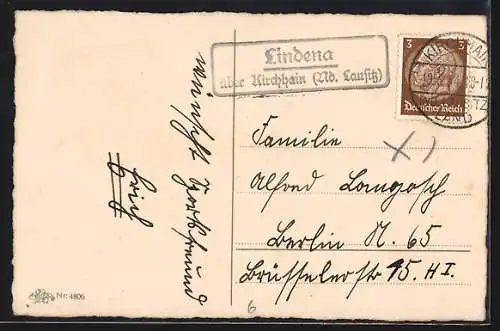 Lindena
über Kirchhain (Nd. Lausitz)
3
Deutsches Reich
KIRCHHAIN
LAND
wünscht
Erich
Familie
Alfred Langosch
Berlin N. 65
Brüsselerstr 45. H I.
6
Nr. 4806